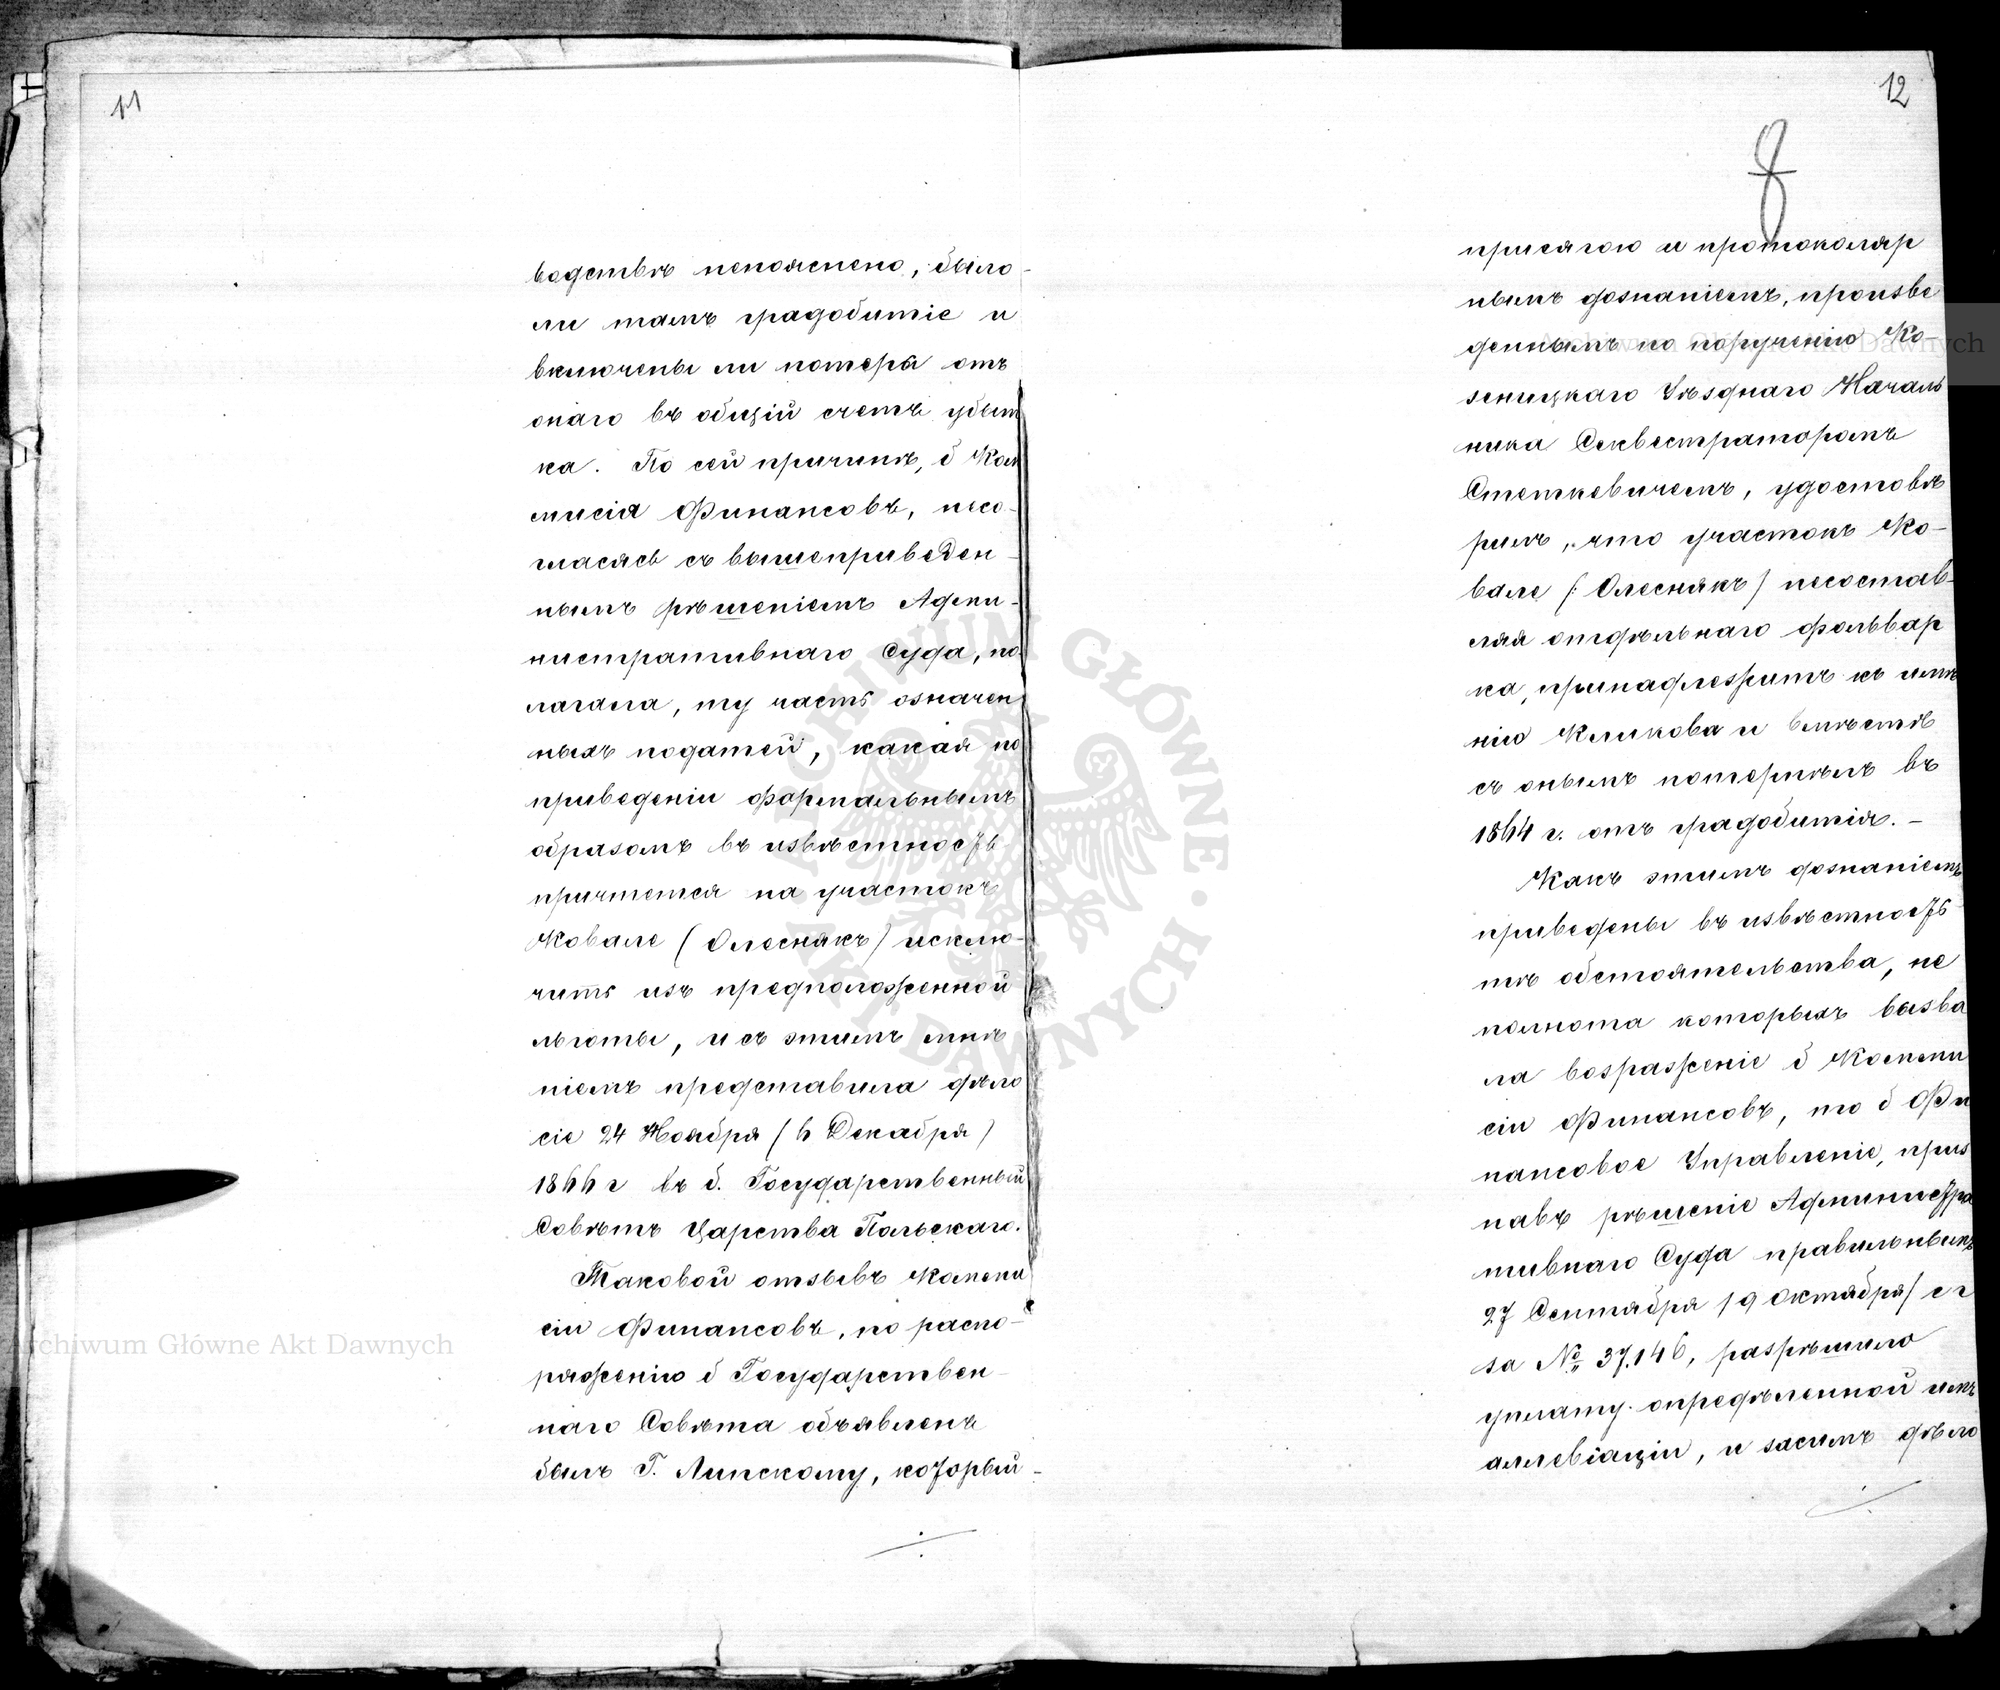 11
водствѣ непояснено, было-
ли тамъ градобитіе и
включены ли потери отъ
онаго въ общій счетъ убыт
ка. По сей причинѣ, б Ком
мисія Финансовъ, несо-
гласясь съ вышеприведен-
нымъ рѣшеніемъ Адми-
нистративнаго Суда, по-
лагала, ту часть означен
ныхъ податей, какая по
приведеніи формальнымъ
образомъ въ извѣстность
причтется на участокъ
Ковале (Олеснякъ) исклю-
чить изъ предположенной
льготы, и съ этимъ мнѣ
ніемъ представила дѣло
сіе 24 Ноября (6 Декабря)
1866 г въ б. Государственный
Совѣтъ Царства Польскаго.
Таковой отзывъ Комми
сіи Финансовъ, по распо-
ряженію б Государствен-
наго Совѣта объявленъ
былъ Г. Липскому, который-
12
8
присягою и протоколяр
нымъ дознаніемъ, произве
деннымъ по порученію Ко-
зеницкаго Уѣзднаго Началь
ника Секвестраторомъ
Стеткевичемъ, удостовѣ
рилъ, что участокъ Ко-
вале (: Олеснякъ) несостав-
ляя отдѣльнаго фольвар
ка, принадлежитъ къ имѣ
нію Кликова и вмѣстѣ
съ онымъ потерпѣлъ въ
1864 г. отъ градобитія. -
Какъ этимъ дознаніемъ
приведены въ извѣстность
тѣ обстоятельства, не
полнота которыхъ вызва
ла возраженіе б Комми
сіи Финансовъ, то б Фи
нансовое Управленіе, приз
навъ рѣшеніе Администра
тивнаго Суда правильнымъ
27 Сентября (9 Октября) с г
за № 37.146, разрѣшило
уплату опредѣленной имъ
аллевіаціи, и засимъ дѣло
Archiwum Główne Akt Dawnych
Archiwum Główne Akt Dawnych
ARCHIWUM GŁÓWNE · AKT DAWNYCH ·